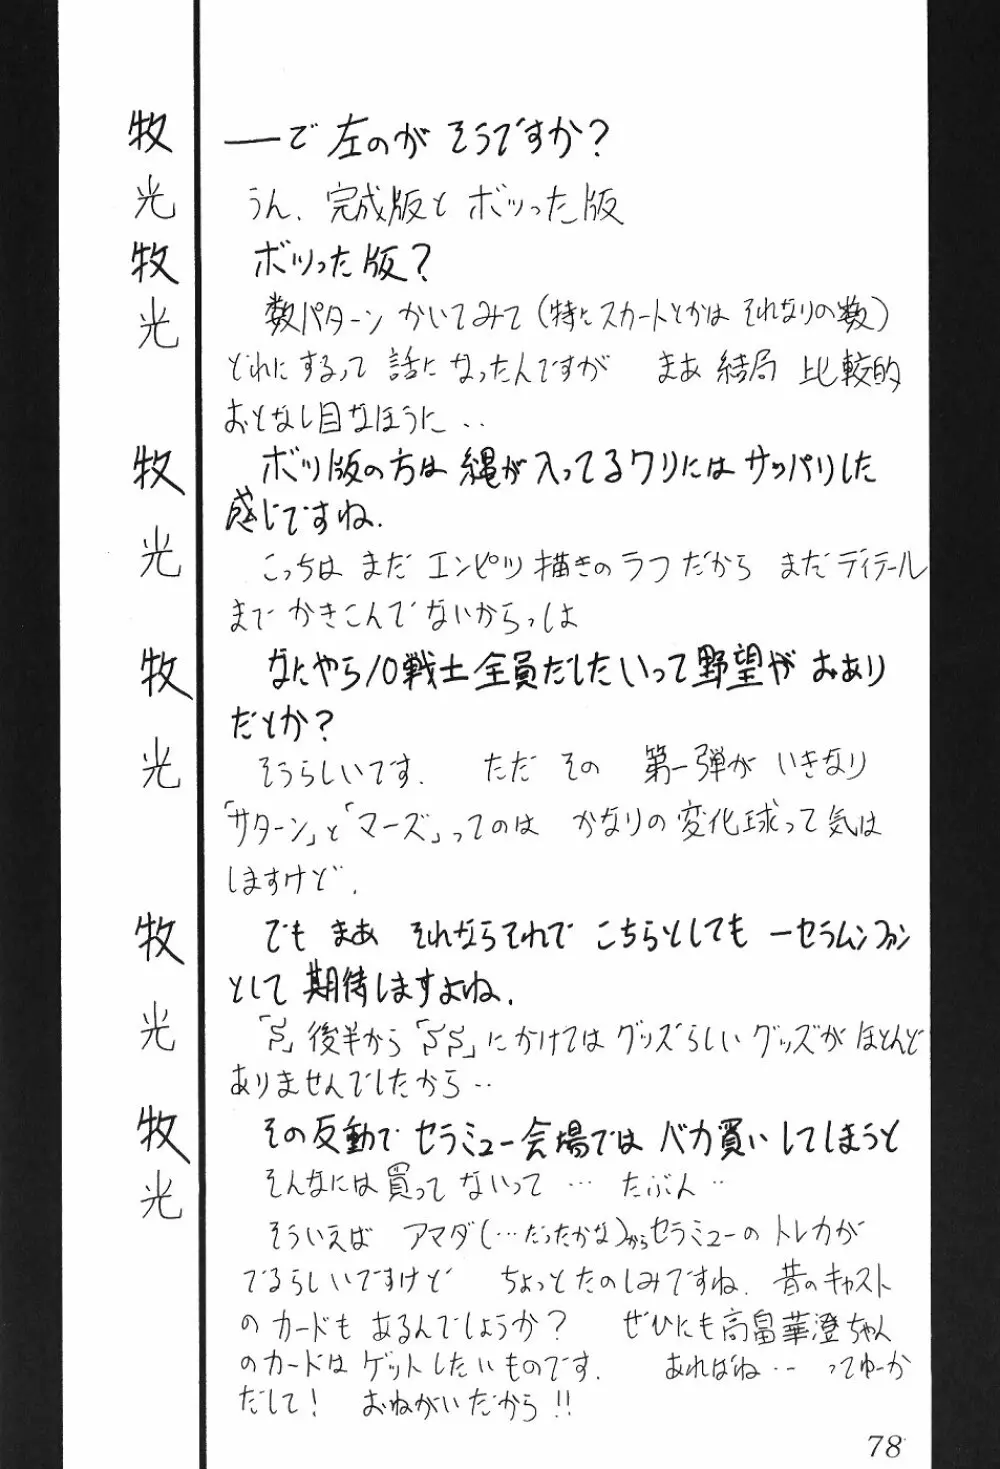 牧 ――で 左のが そうですか？
光 うん、完成版と ボツった版
牧 ボツった版？
光 数パターン かいてみて（特にスカートとかは それなりの数）
どれにするって 話になったんですが まあ 結局 比較的
おとなし目なほうに‥
牧 ボツ版の方は 縄が入ってるワリには サッパリした
感じですね．
光 こっちは まだ エンピツ描きのラフだから まだ ディテール
まで かきこんでないからっしょ
牧 なにやら10戦士全員だしたいって野望が おあり
だとか？
光 そうらしいです． ただ その 第一弾が いきなり
「サターン」と「マーズ」ってのは かなりの変化球って気は
しますけど．
牧 でも まあ それならそれで こちらとしても 一セラムンファン
として 期待しますよね．
光 「S」後半から「SS」にかけては グッズらしい グッズが ほとんど
ありませんでしたから‥
牧 その反動で セラミュー会場では バカ買い してしまうと
光 そんなには買って ないって … たぶん‥
そういえば アマダ（…だったかな）からセラミューの トレカが
でるらしいですけど ちょっとたのしみですね．昔のキャスト
のカードも あるんでしょうか？ ぜひにも高畠華澄ちゃん
のカードは ゲットしたいものです． あればね‥‥ ってゆーか
だして！ おねがいだから！！
78